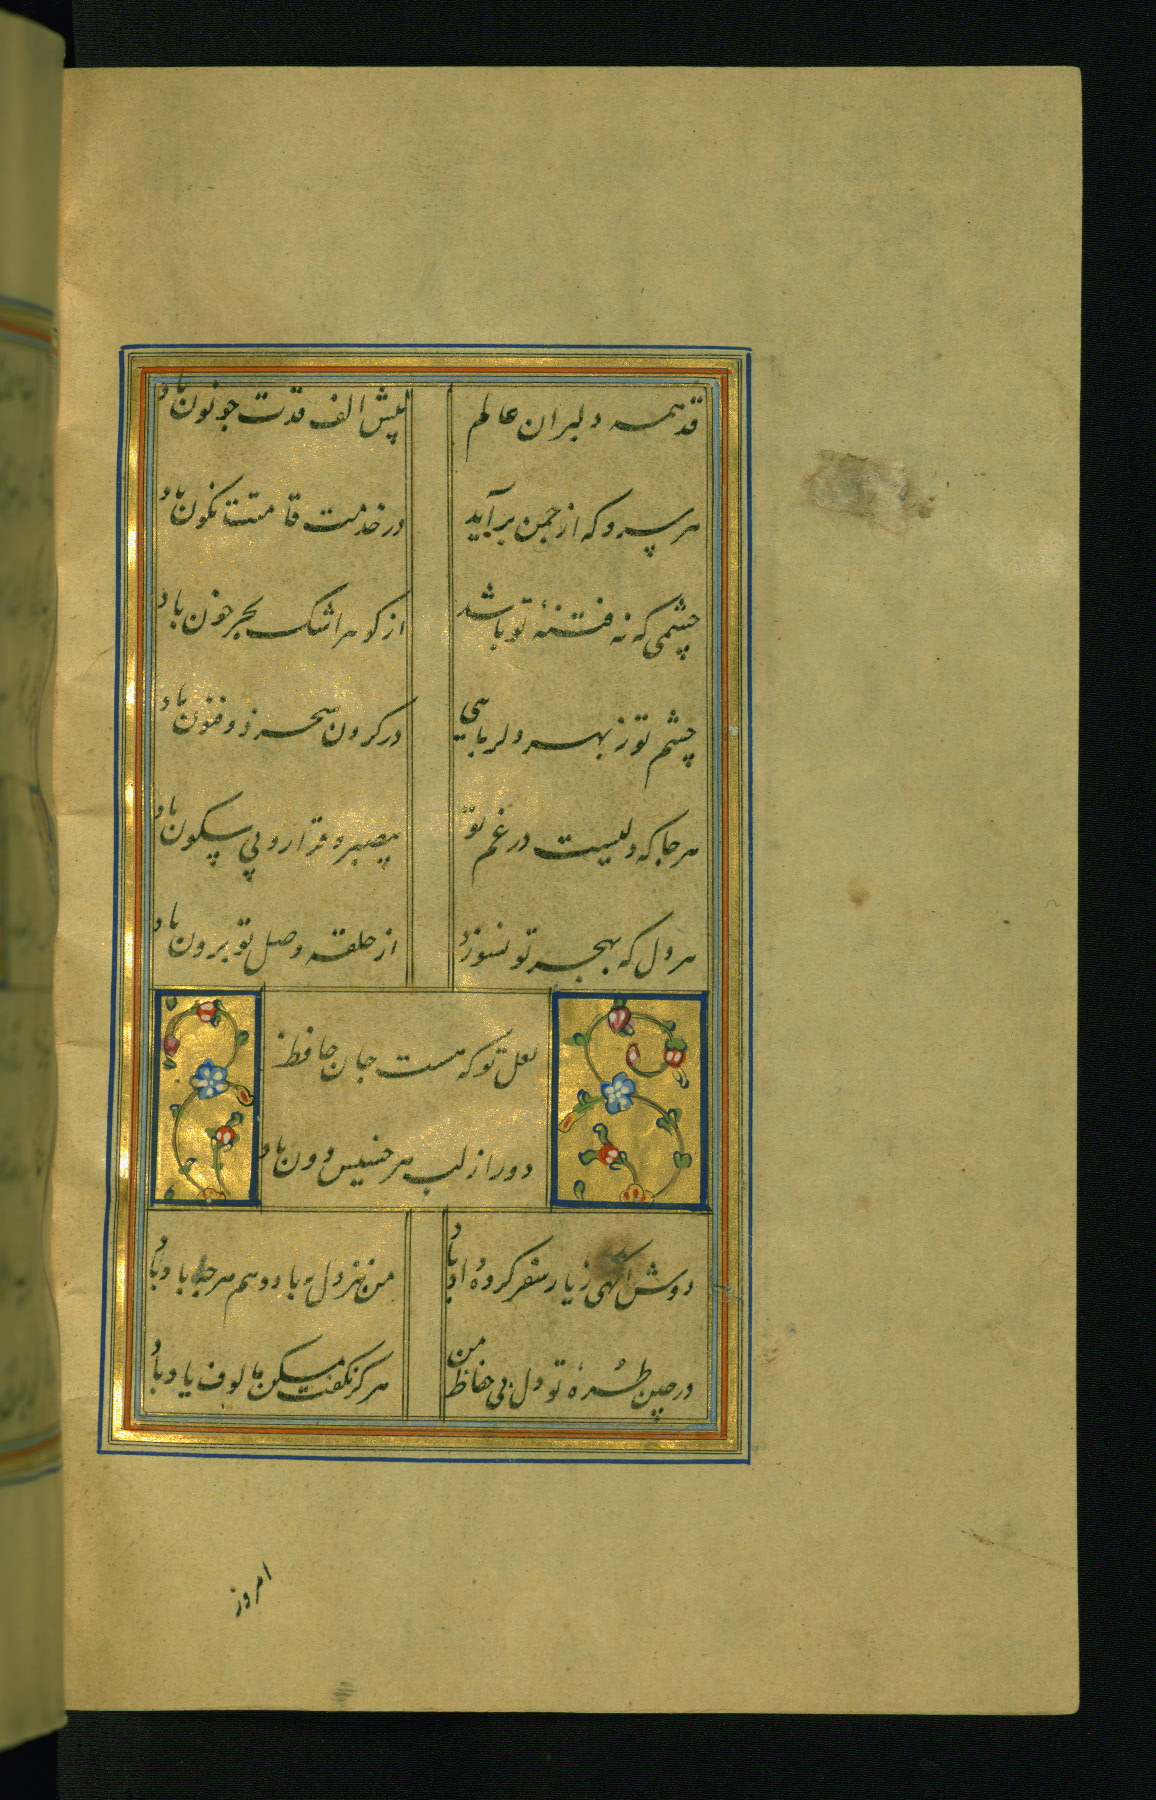 قد همه دلبران عالم پیش الف قدت چو نون باد
هر سرو که از چمن برآید در خدمت قامتت نکون باد
چشمی که نه فتنهٔ تو باشد از کوهر اشک بحر خون باد
چشم تو ز بهر دلربایی در کردن سحر ذوفنون باد
هر جا که دلیست در غم تو بیصبر و قرار و بی سکون باد
هر دل که بهجر تو نسوزد از حلقه وصل تو برون باد
لعل تو که هست جان حافظ
دور از لب هر خسیس دون باد
دوش آکهی ز یار سفر کرده داد باد من نیز دل به باد دهم هر چه باد باد
در چین طرهٔ تو دل بی حفاظ من هرکز نکفت مسکن مالوف یاد باد
امروز